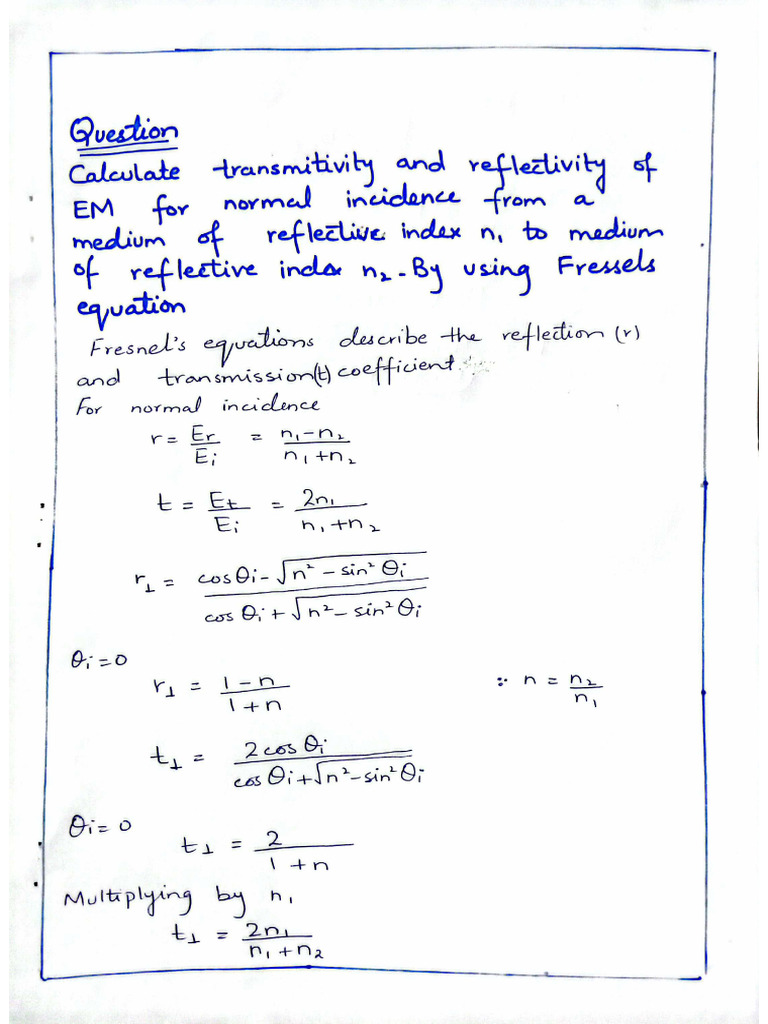 Question
Calculate transmitivity and reflectivity of
EM for normal incidence from a
medium of reflective index n₁ to medium
of reflective index n₂. By using Fressels
equation
Fresnel's equations describe the reflection (r)
and transmission(t) coefficient.
For normal incidence
r = Er/Ei = n₁-n₂/n₁+n₂
t = Et/Ei = 2n₁/n₁+n₂
r⊥ = cosθi - √n² - sin²θi / cosθi + √n² - sin²θi
θi = 0
r⊥ = 1-n/1+n ∵ n = n₂/n₁
t⊥ = 2cosθi / cosθi + √n² - sin²θi
θi = 0
t⊥ = 2/1+n
Multiplying by n₁
t⊥ = 2n₁/n₁+n₂